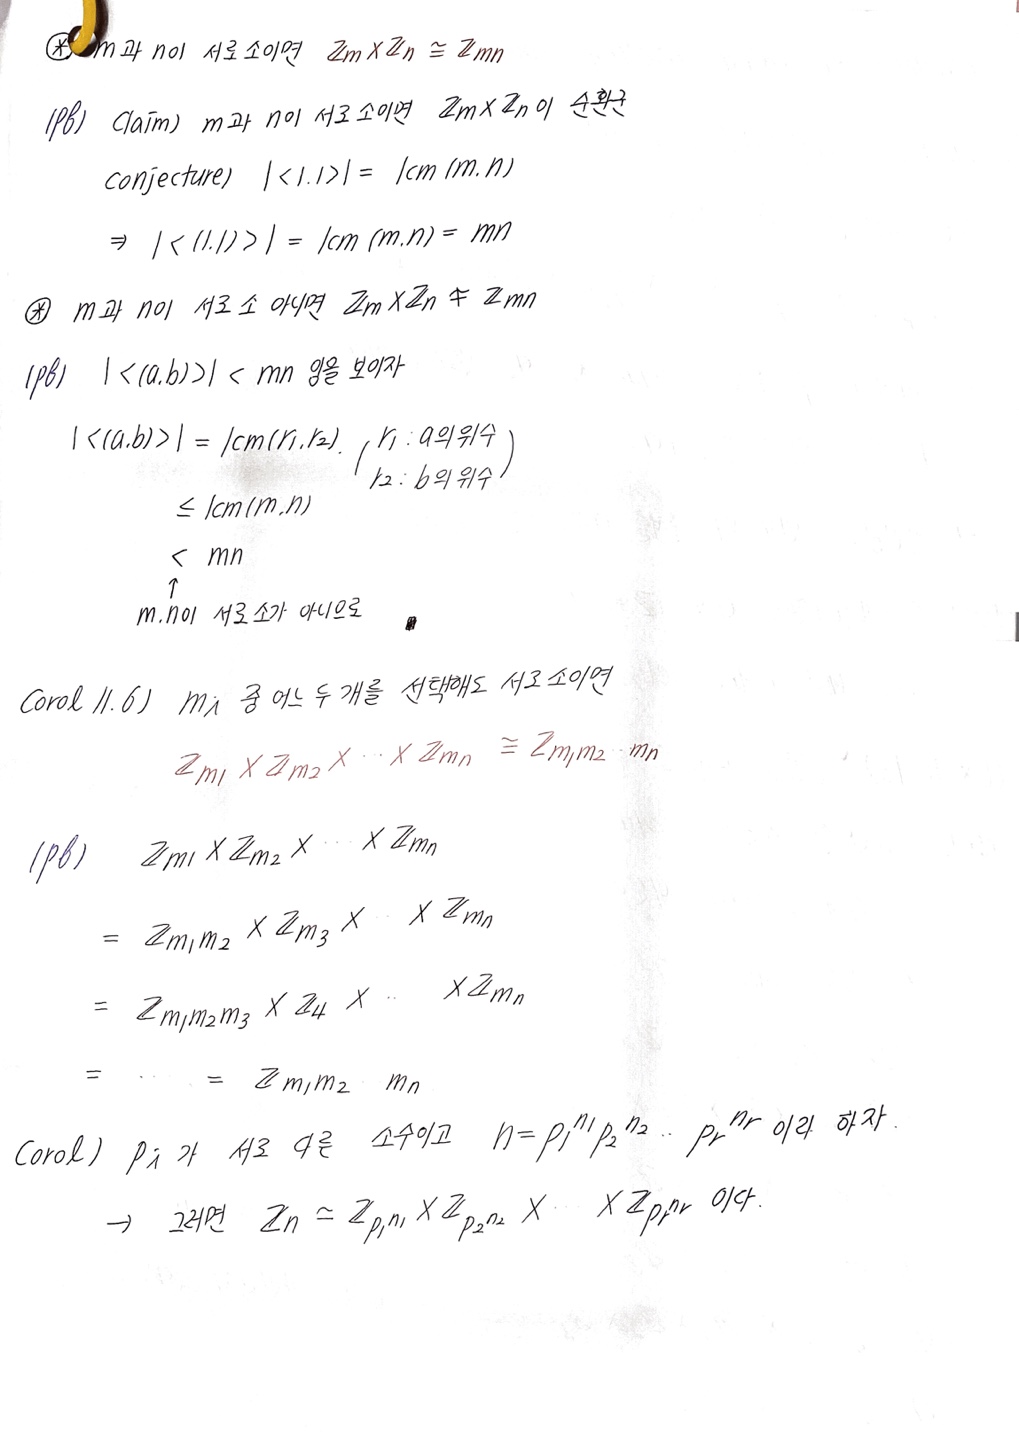 ⊛ m과 n이 서로소이면 ℤm×ℤn ≅ ℤmn
(pf) Claim) m과 n이 서로소이면 ℤm×ℤn이 순환군
conjecture) |<1.1>| = lcm (m.n)
⇒ |<(1.1)>| = lcm (m.n) = mn
⊛ m과 n이 서로소 아니면 ℤm×ℤn ≇ ℤmn
(pf) |<(a.b)>| < mn 임을 보이자
|<(a.b)>| = lcm(r₁.r₂). (r₁ : a의 위수
r₂ : b의 위수)
≤ lcm(m.n)
< mn
↑
m.n이 서로소가 아니으로
Corol 11.6) mᵢ 중 어느 두 개를 선택해도 서로소이면
ℤm₁ × ℤm₂ × ⋯ × ℤmn ≅ ℤm₁m₂ ⋯ mn
(pf) ℤm₁ × ℤm₂ × ⋯ × ℤmn
= ℤm₁m₂ × ℤm₃ × ⋯ × ℤmn
= ℤm₁m₂m₃ × ℤ₄ × ⋯ × ℤmn
= ⋯ = ℤm₁m₂ mn
Corol) pᵢ가 서로 다른 소수이고 n = p₁^n₁ p₂^n₂ ‥ pr^nr 이라 하자.
→ 그러면 ℤn ≃ ℤp₁^n₁ × ℤp₂^n₂ × ⋯ × ℤpr^nr 이다.